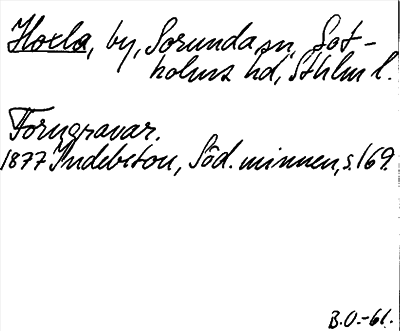 Hoxla, by, Sorunda sn, Sot-
holms hd, Sthlm l.
Forngravar.
1877 Indebetou, Söd. minnen, s. 169.
B.O.-61.